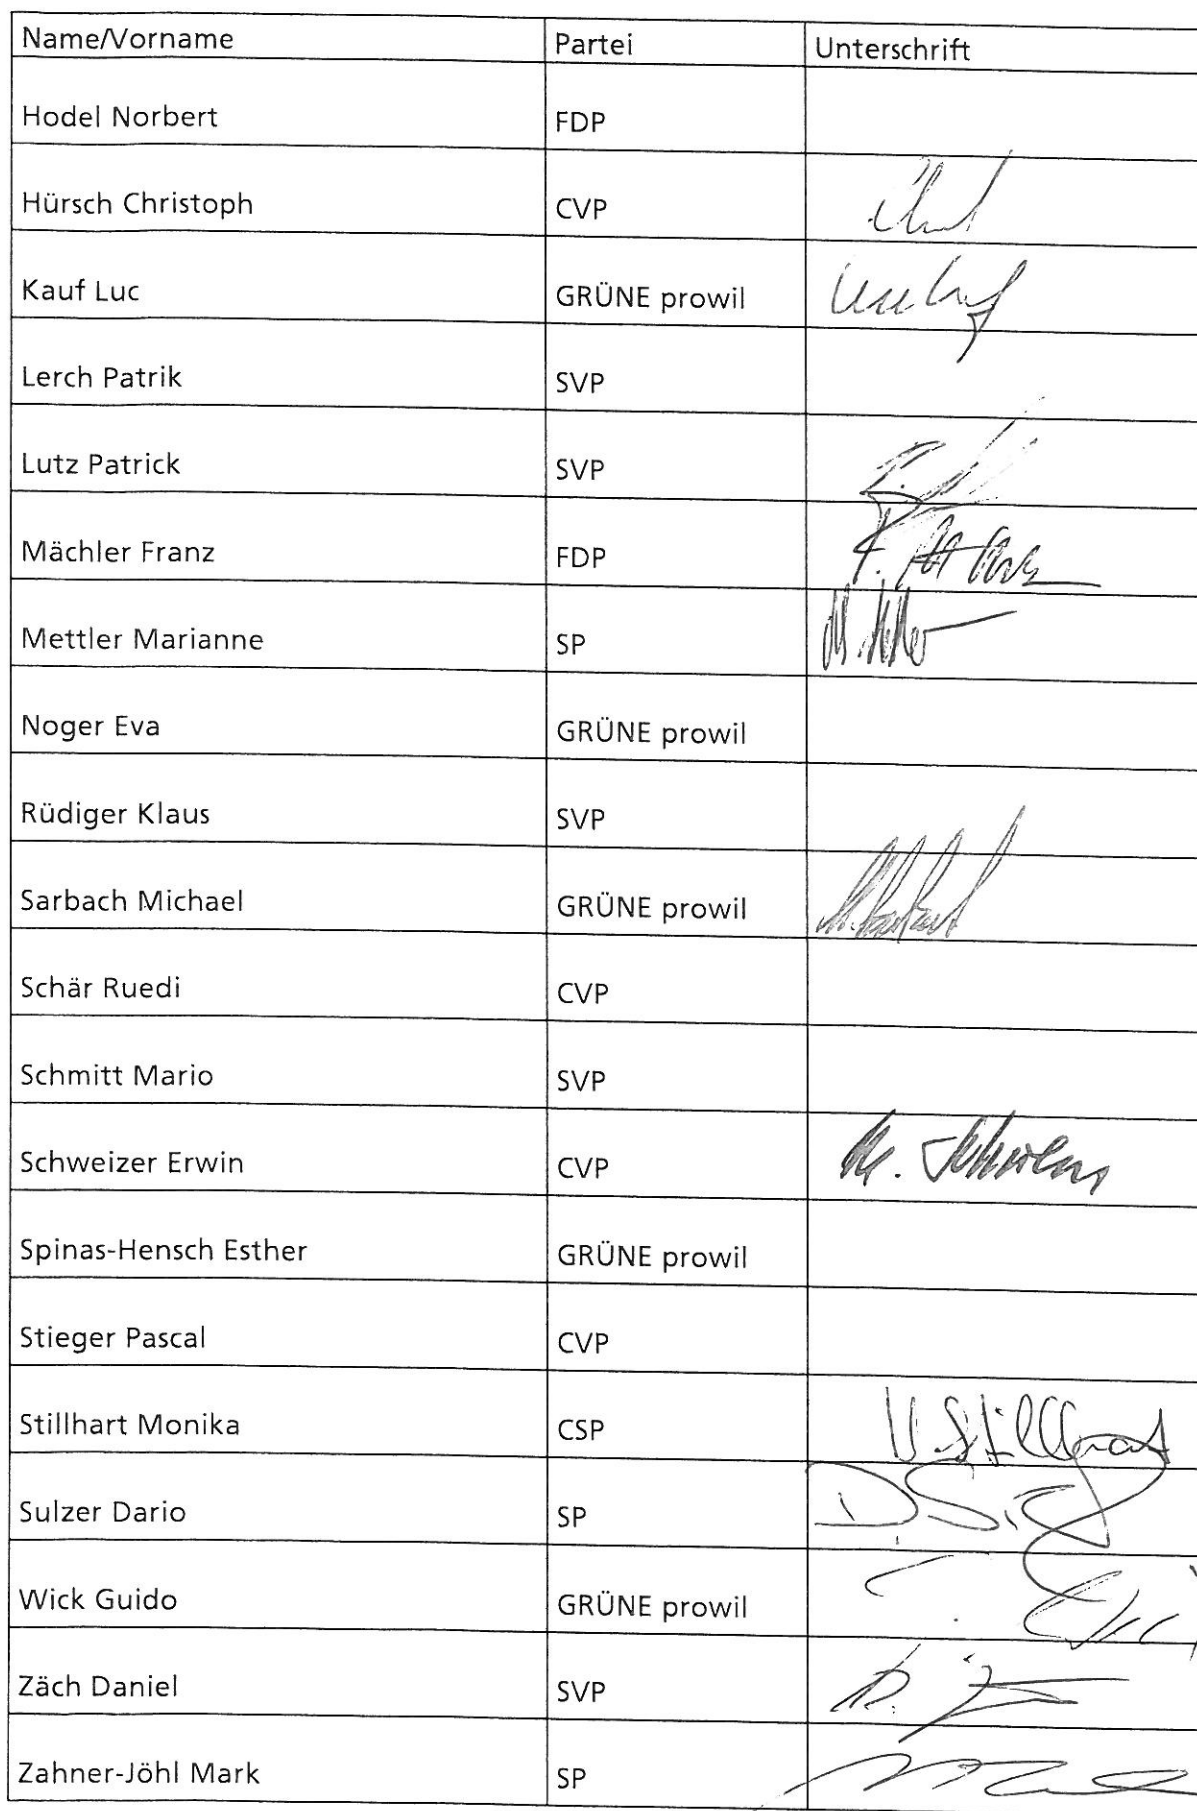 Name/Vorname Partei Unterschrift
Hodel Norbert FDP
Hürsch Christoph CVP
Kauf Luc GRÜNE prowil
Lerch Patrik SVP
Lutz Patrick SVP
Mächler Franz FDP
Mettler Marianne SP
Noger Eva GRÜNE prowil
Rüdiger Klaus SVP
Sarbach Michael GRÜNE prowil
Schär Ruedi CVP
Schmitt Mario SVP
Schweizer Erwin CVP
Spinas-Hensch Esther GRÜNE prowil
Stieger Pascal CVP
Stillhart Monika CSP
Sulzer Dario SP
Wick Guido GRÜNE prowil
Zäch Daniel SVP
Zahner-Jöhl Mark SP